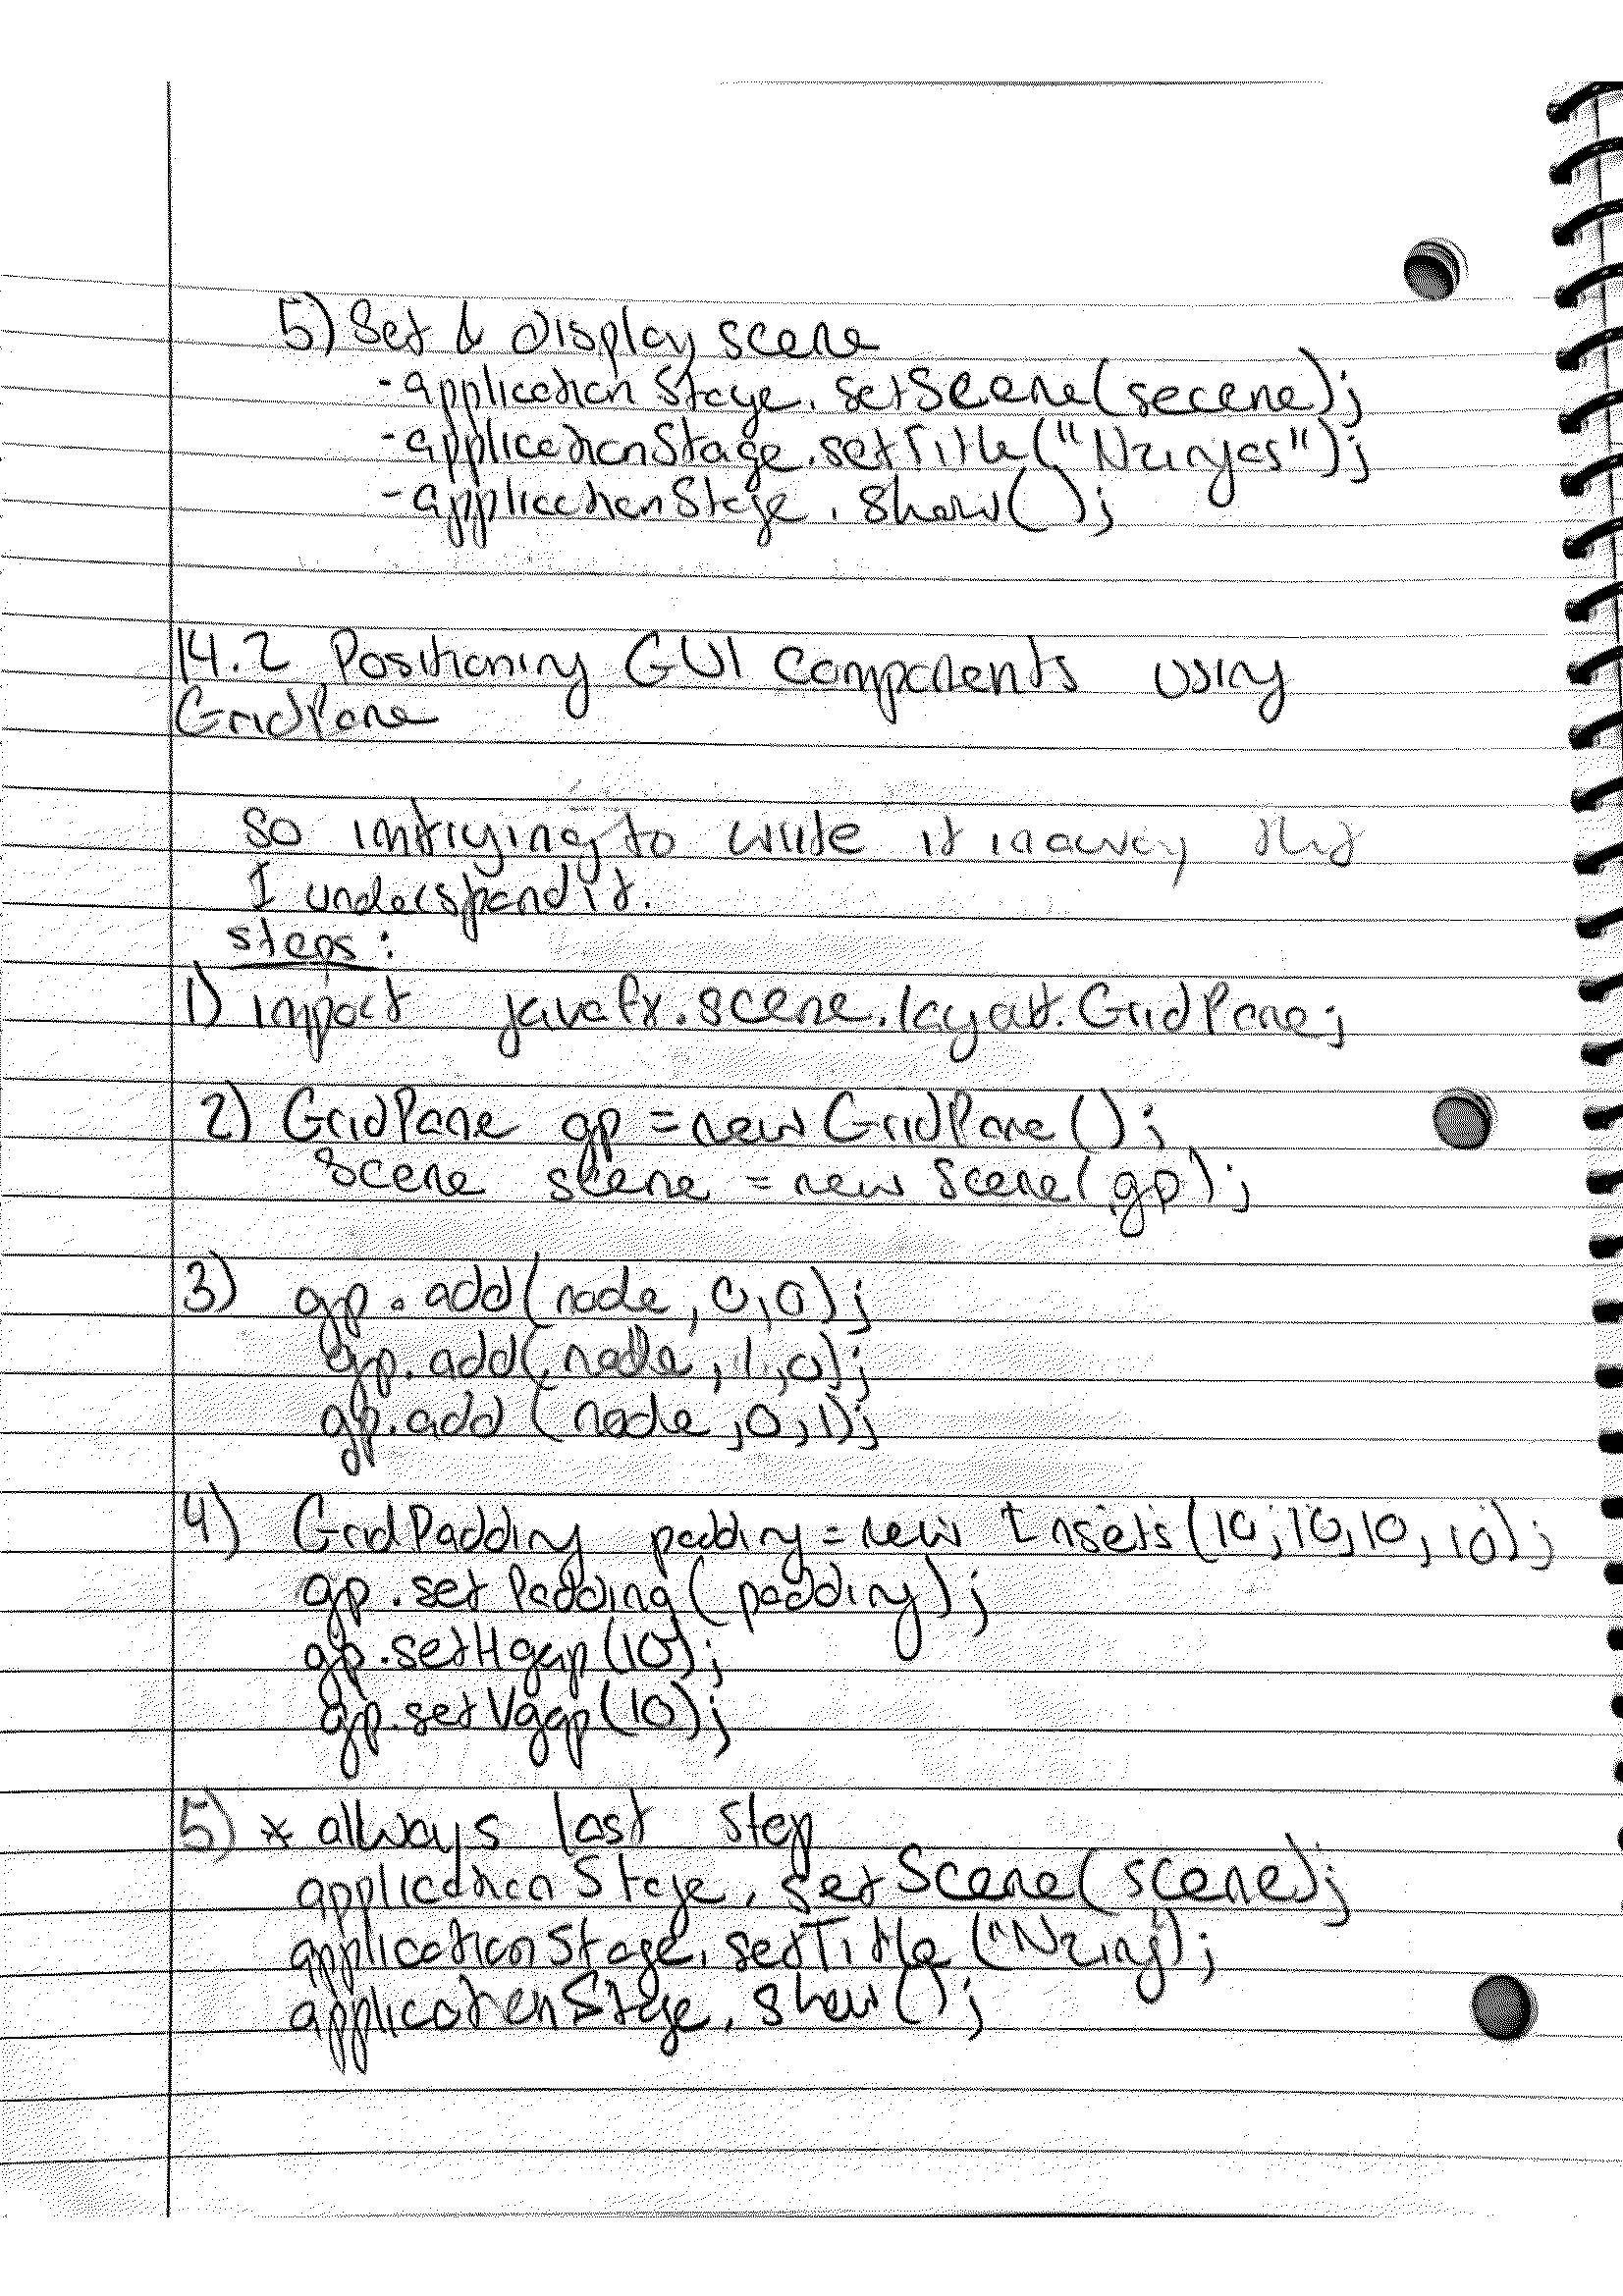 5) Set & display scene
- applicationStage.setScene(secene);
- applicationStage.setTitle("Nzinjas");
- applicationStage.show();
14.2 Positioning GUI Components using
GridPane
So imtrying to write it in away that
I underspand it.
steps:
1) import javafx.scene.layout.GridPane;
2) GridPane gp = new GridPane();
Scene scene = new Scene(gp);
3) gp.add(node,0,0);
gp.add(node,1,0);
gp.add(node,0,1);
4) GridPadding padding = new Insets(10,10,10,10);
gp.setPadding(padding);
gp.setHgap(10);
gp.setVgap(10);
5) * allways last step
applicationStage.setScene(scene);
applicationStage.setTitle("Nzinj");
applicationStage.show();